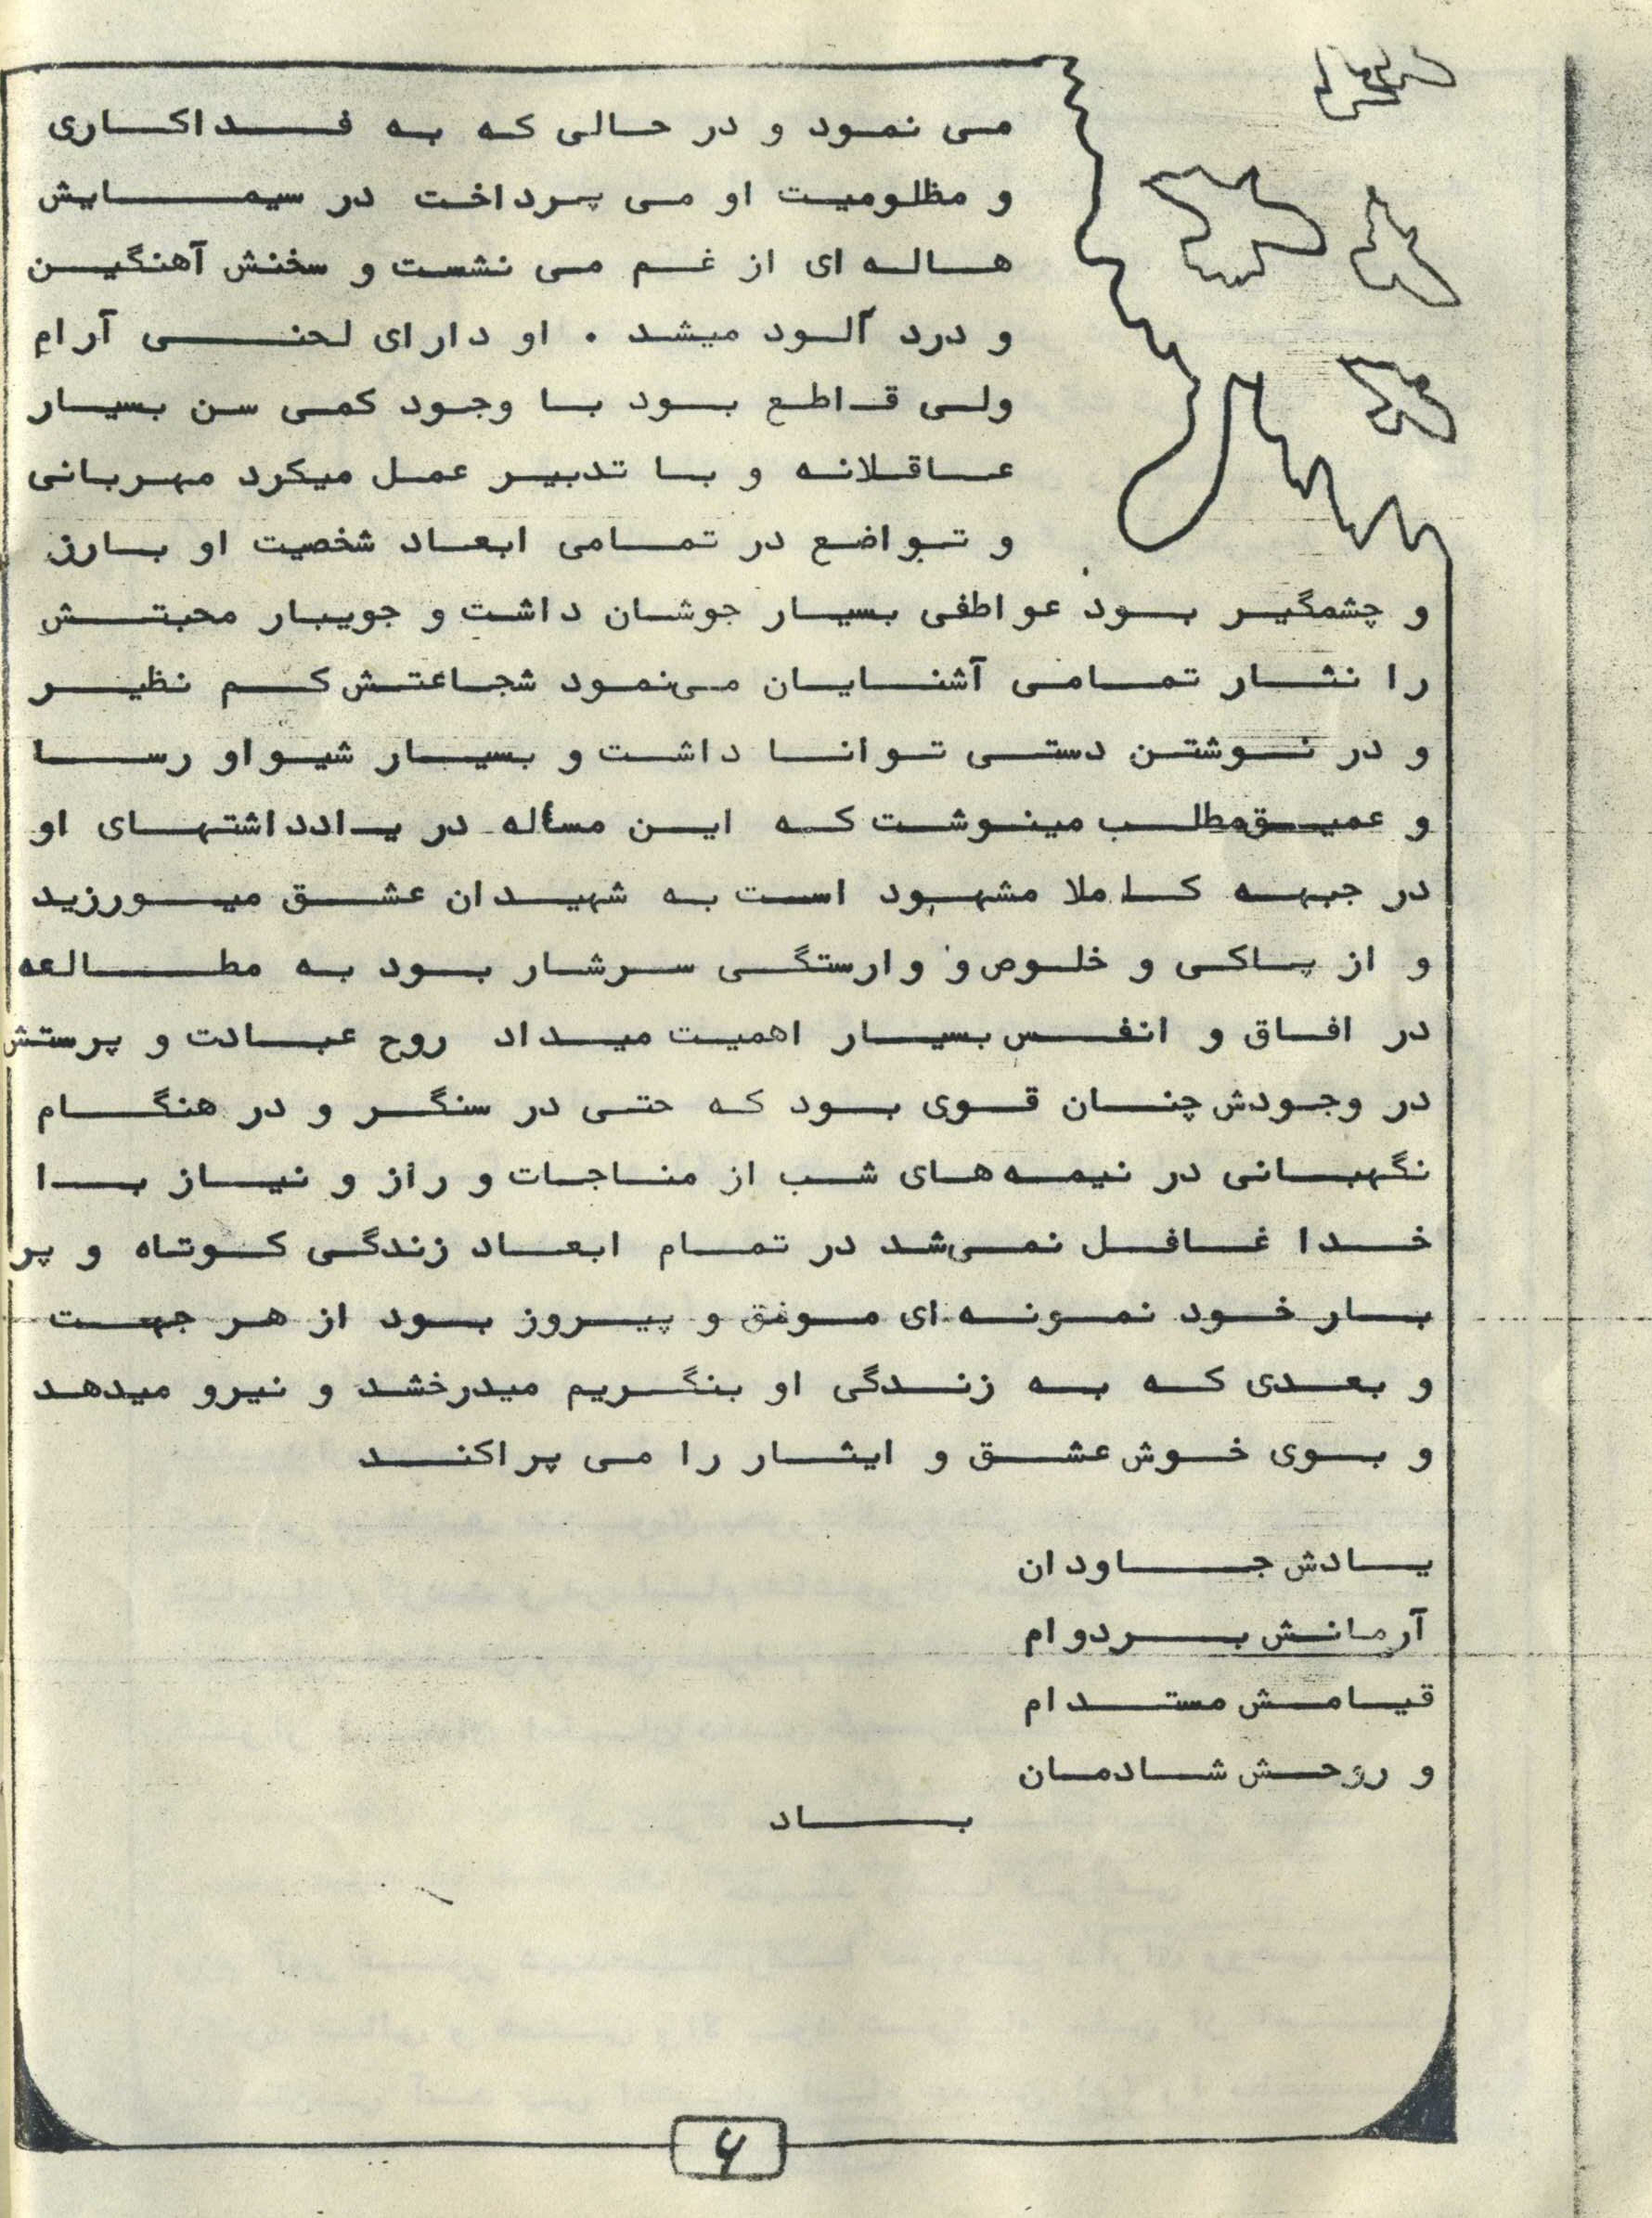 می نمود و در حالی که به فداکاری
و مظلومیت او می پرداخت در سیمایش
هاله ای از غم می نشست و سخنش آهنگین
و درد آلود میشد . او دارای لحنی آرام
ولی قاطع بود با وجود کمی سن بسیار
عاقلانه و با تدبیر عمل میکرد مهربانی
و تواضع در تمامی ابعاد شخصیت او بارز
و چشمگیر بود عواطفی بسیار جوشان داشت و جویبار محبتش
را نثار تمامی آشنایان می‌نمود شجاعتش کم نظیر
و در نوشتن دستی توانا داشت و بسیار شیوا و رسا
و عمیق مطلب مینوشت که این مسأله در یادداشتهای او
در جبهه کاملا مشهود است به شهیدان عشق میورزید
و از پاکی و خلوص و وارستگی سرشار بود به مطالعه
در افاق و انفس بسیار اهمیت میداد روح عبادت و پرستش
در وجودش چنان قوی بود که حتی در سنگر و در هنگام
نگهبانی در نیمه های شب از مناجات و راز و نیاز با
خدا غافل نمی‌شد در تمام ابعاد زندگی کوتاه و پر
بار خود نمونه ای موفق و پیروز بود از هر جهت
و بعدی که به زندگی او بنگریم میدرخشد و نیرو میدهد
و بوی خوش عشق و ایثار را می پراکند
یادش جاودان
آرمانش بردوام
قیامش مستدام
و روحش شادمان
باد
۶